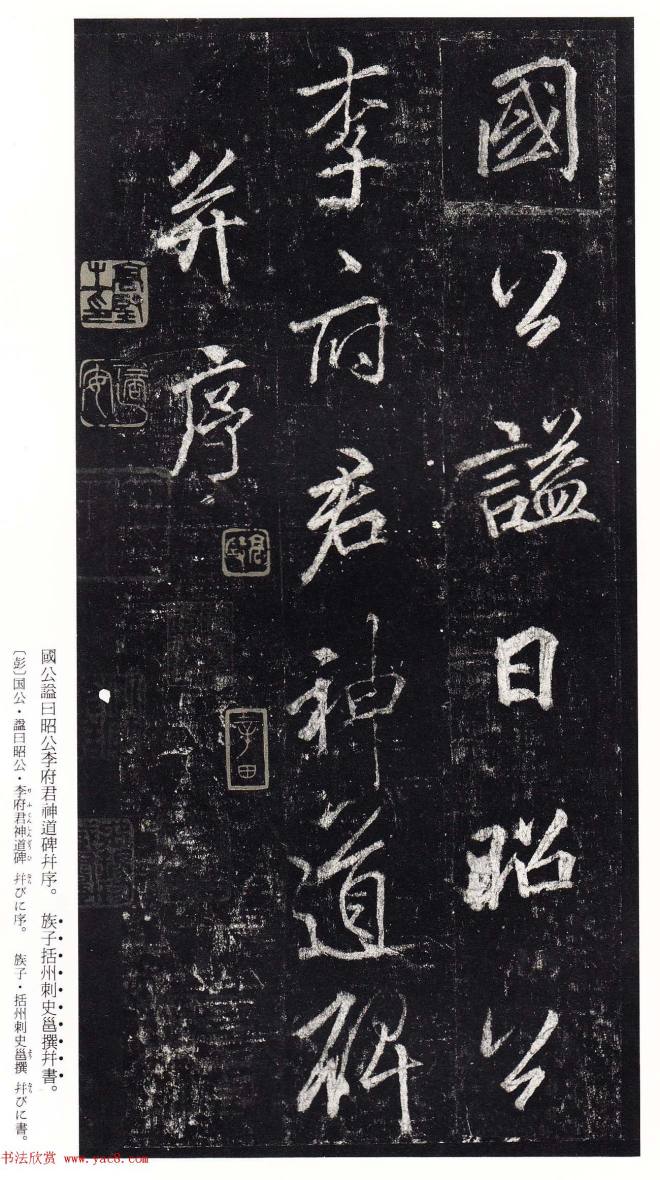 國公謚曰昭公
李府君神道碑
并序
國公謚曰昭公李府君神道碑幷序。　族子括州刺史邕撰幷書。
〔彭〕国公・謚曰昭公・李府君神道碑　幷びに序。　族子・括州刺史邕撰　幷びに書。
书法欣赏 www.yac8.com